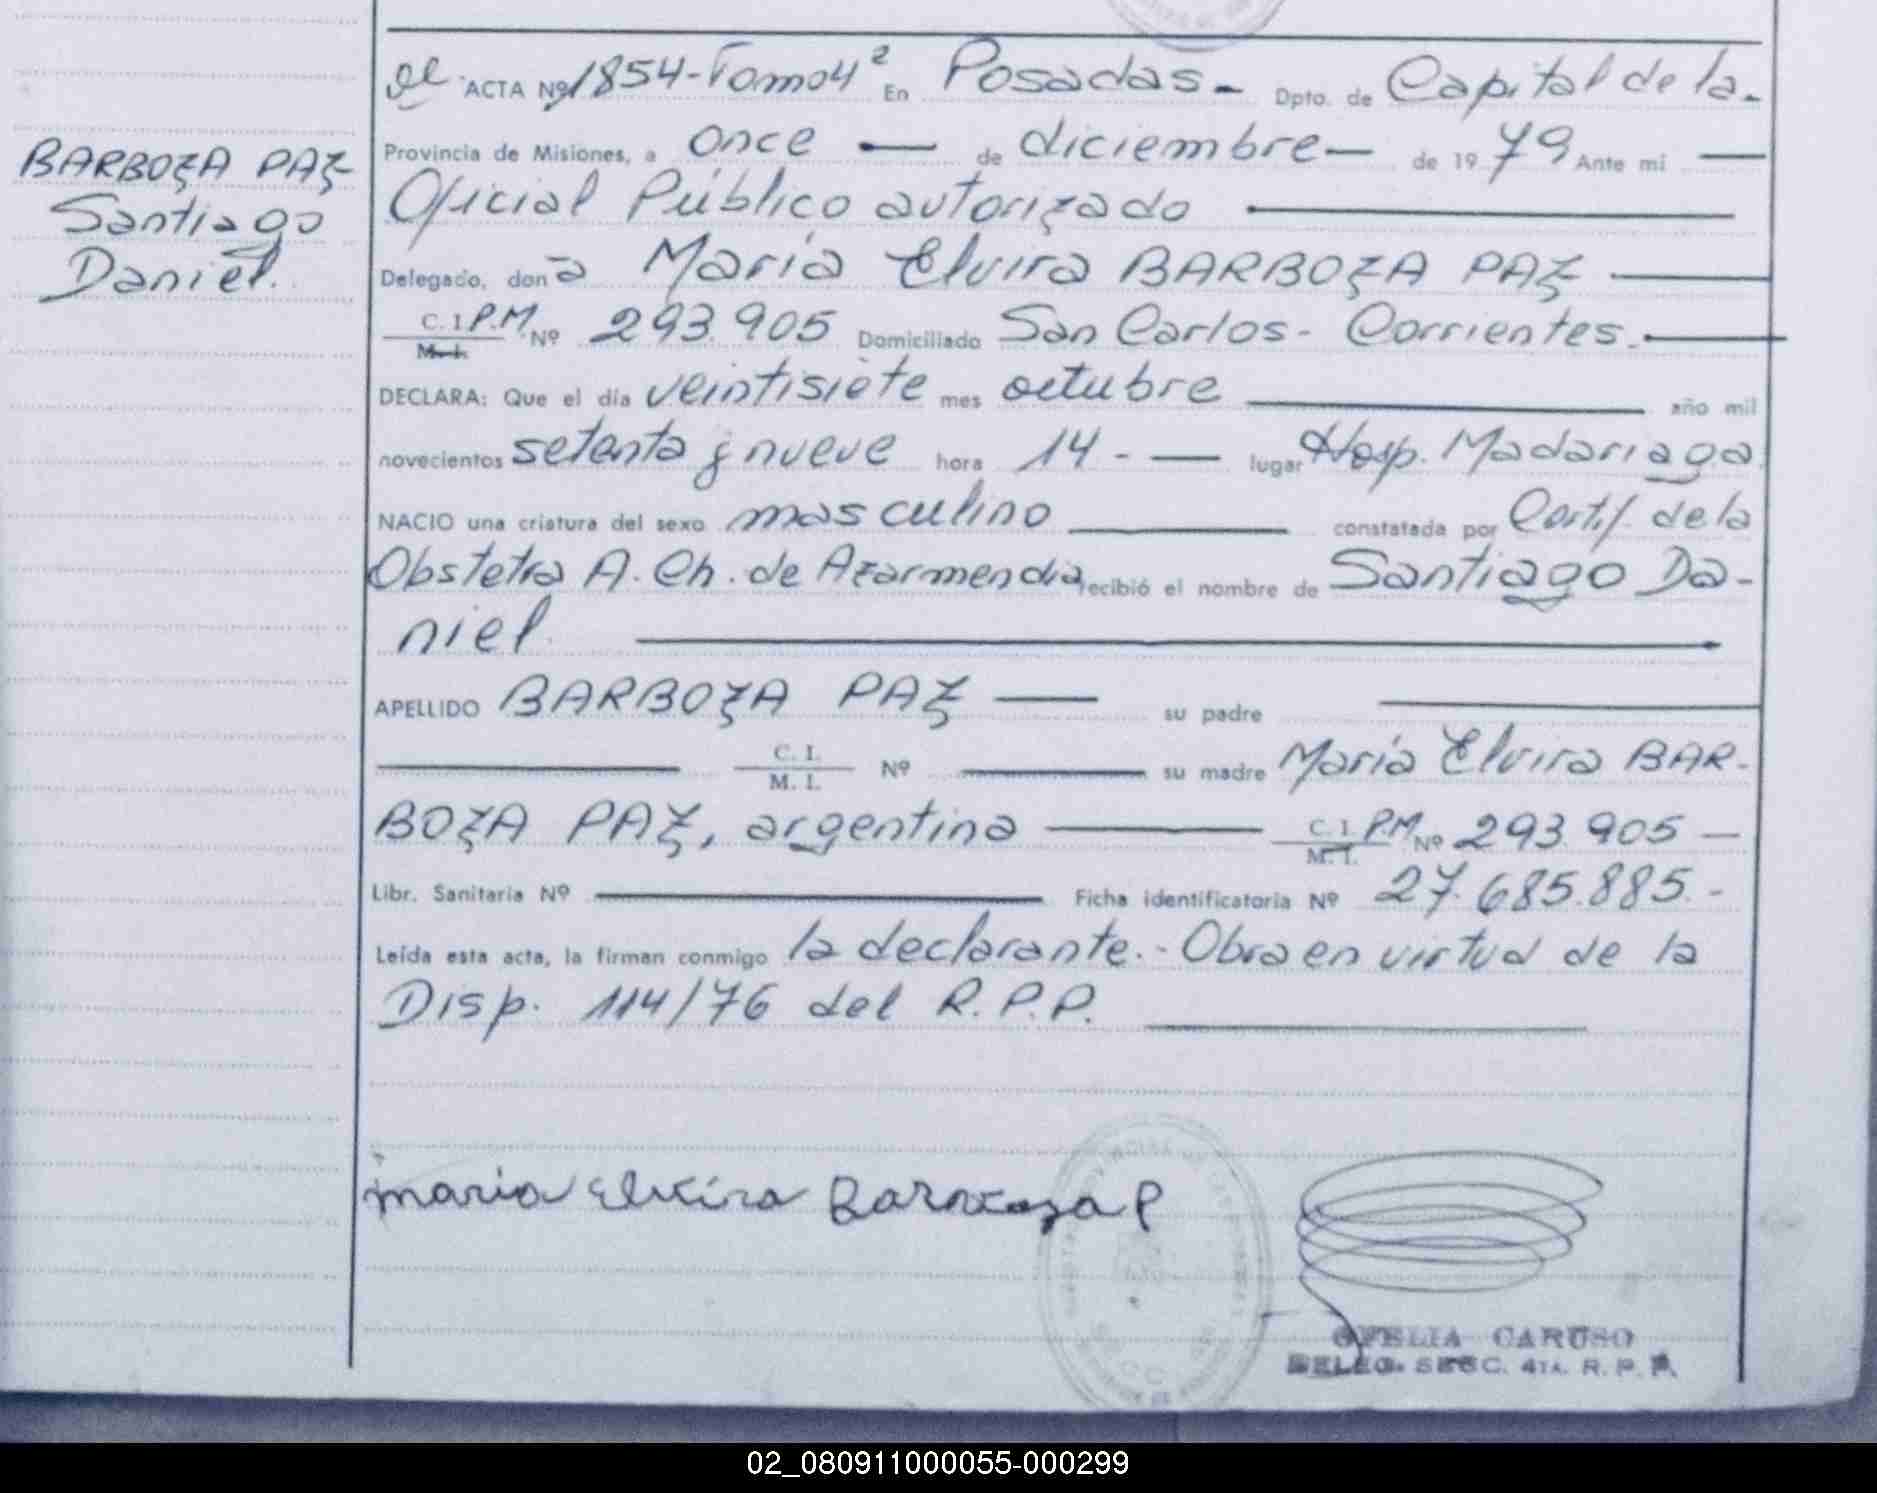 BARBOZA PAZ
Santiago
Daniel.
ACTA Nº 1854-Tomo 4º En Posadas- Dpto. de Capital de la-
Provincia de Misiones, a once — de diciembre— de 19 79 Ante mi —
Oficial Público autorizado —
Delegado, don a María Elvira BARBOZA PAZ —
C. I. P.M. Nº 293.905 Domiciliado San Carlos- Corrientes.—
M. I.
DECLARA: Que el día veintisiete mes octubre — año mil
novecientos setenta y nueve hora 14 - — lugar Hosp. Madariaga
NACIO una criatura del sexo masculino — constatada por Certif. de la
Obstetra A. Ch. de Azarmendia recibió el nombre de Santiago Da-
niel —
APELLIDO BARBOZA PAZ — su padre —
— C. I. Nº — su madre María Elvira BAR-
M. I.
BOZA PAZ, argentina — C. I. P.M. Nº 293.905 —
M. I.
Libr. Sanitaria Nº — Ficha identificatoria Nº 27.685.885.-
Leída esta acta, la firman conmigo la declarante.- Obra en virtud de la
Disp. 114/76 del R.P.P. —
maria Elvira Barboza P
OFELIA CARUSO
DELEG. SECC. 4TA. R. P. P.
02_080911000055-000299